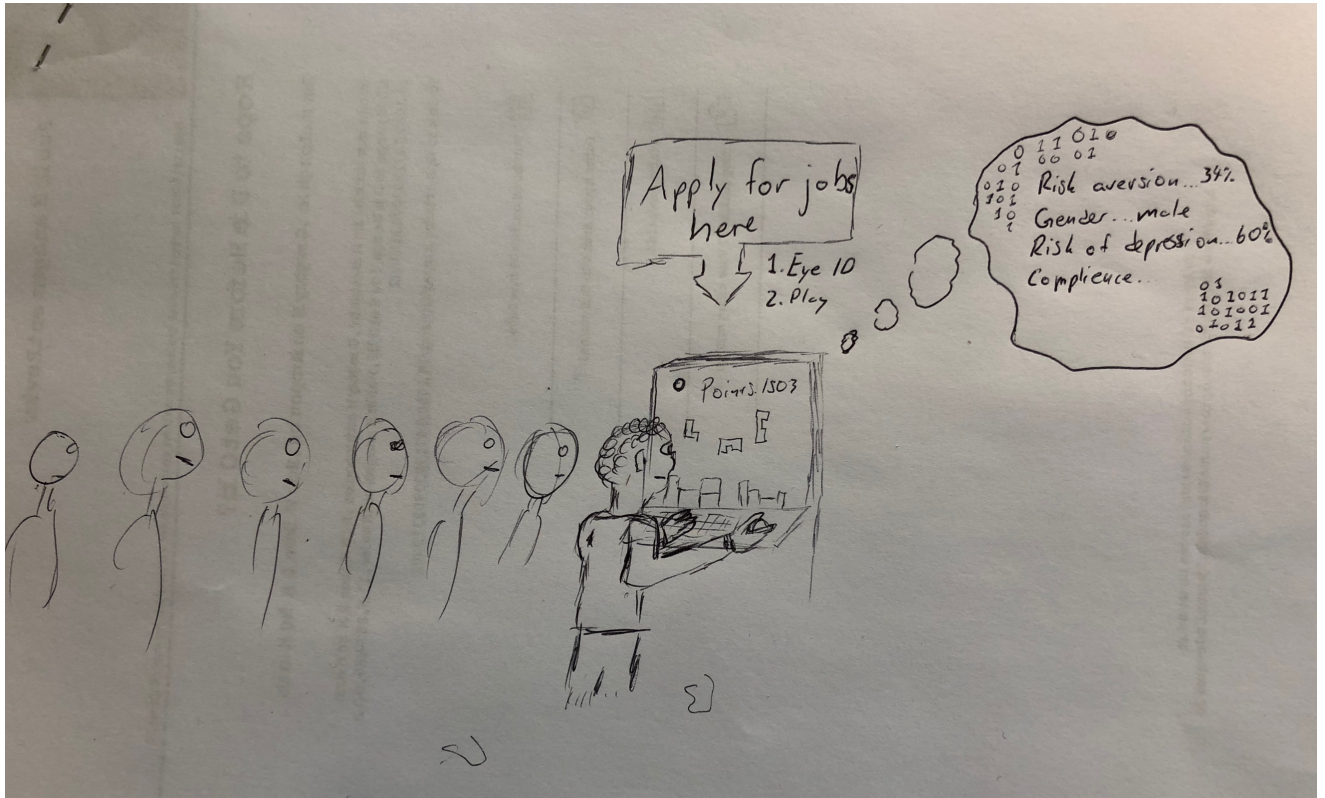 Apply for jobs
here
1. Eye ID
2. Play
0 1 1 0 1 0
0 1 0 0 0 1
0 1 0
1 0 1
1 0
1
Risk aversion... 34%
Gender... male
Risk of depression... 60%
Complience..
0 1
1 0 1 0 1 1
1 0 1 0 0 1
0 1 0 1 1
Points. 1503